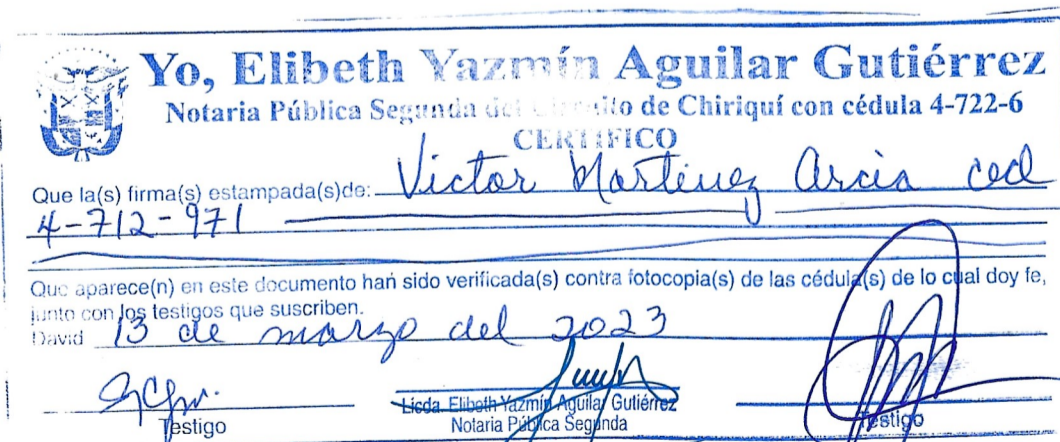 Yo, Elibeth Yazmín Aguilar Gutiérrez
Notaria Pública Segunda del Circuito de Chiriquí con cédula 4-722-6
CERTIFICO
Que la(s) firma(s) estampada(s)de: Victor Martinez Arcia ced
4-712-971
Que aparece(n) en este documento han sido verificada(s) contra fotocopia(s) de las cédula(s) de lo cual doy fe,
junto con los testigos que suscriben.
David 13 de marzo del 2023
Licda. Elibeth Yazmín Aguilar Gutiérrez
Testigo Notaria Pública Segunda Testigo